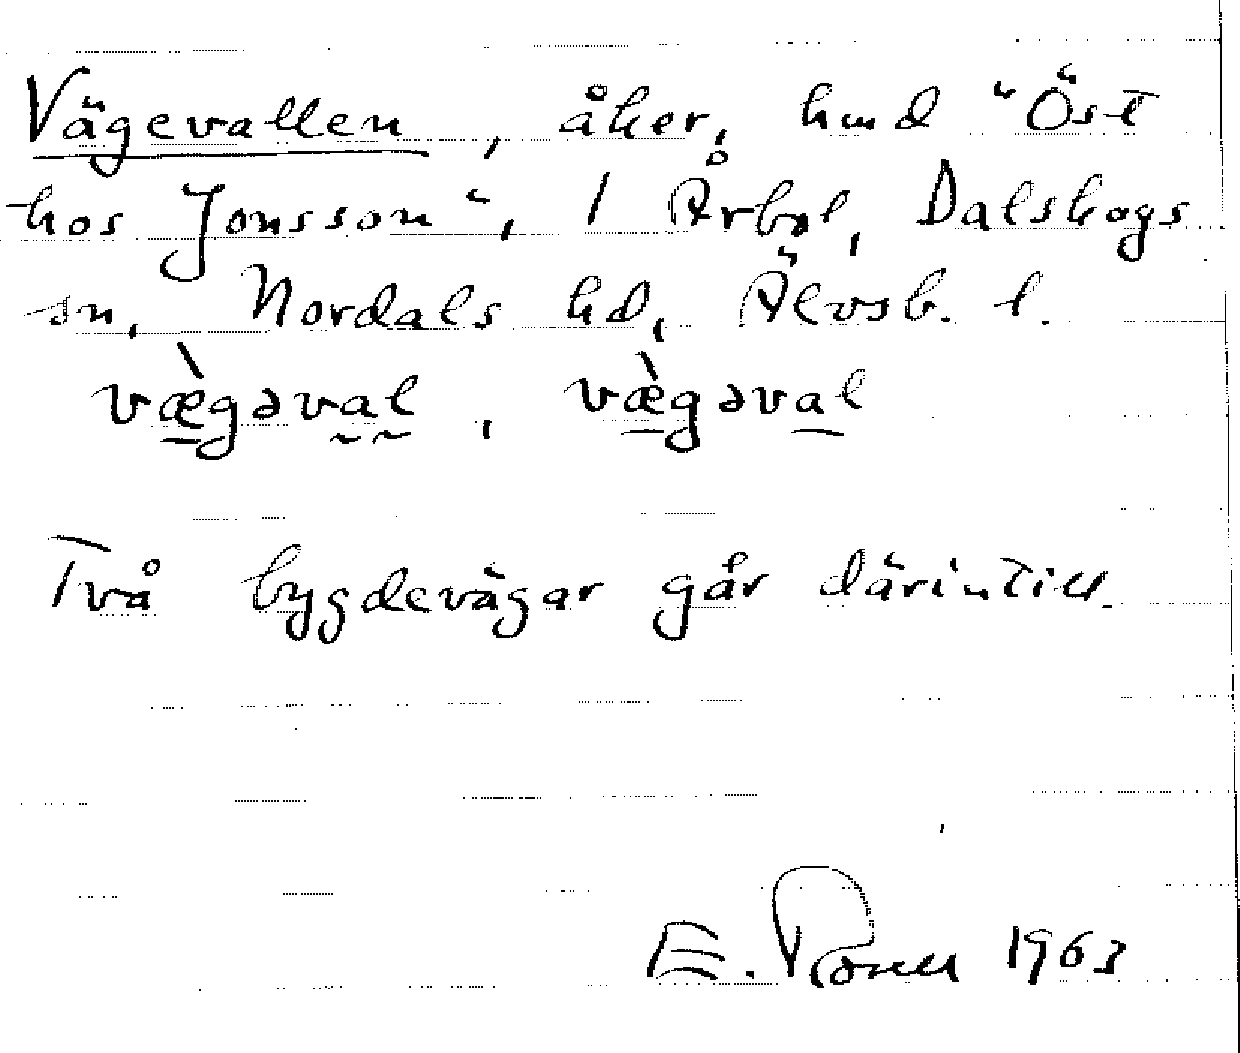 Vägevallen, åker, hmd "Öst
hos Jonsson", 1 Årbol, Dalskogs
sn, Nordals hd, Älvsb. l.
væ̀gəval, væ̀gəval
Två bygdevägar går därintill.
E. 1963